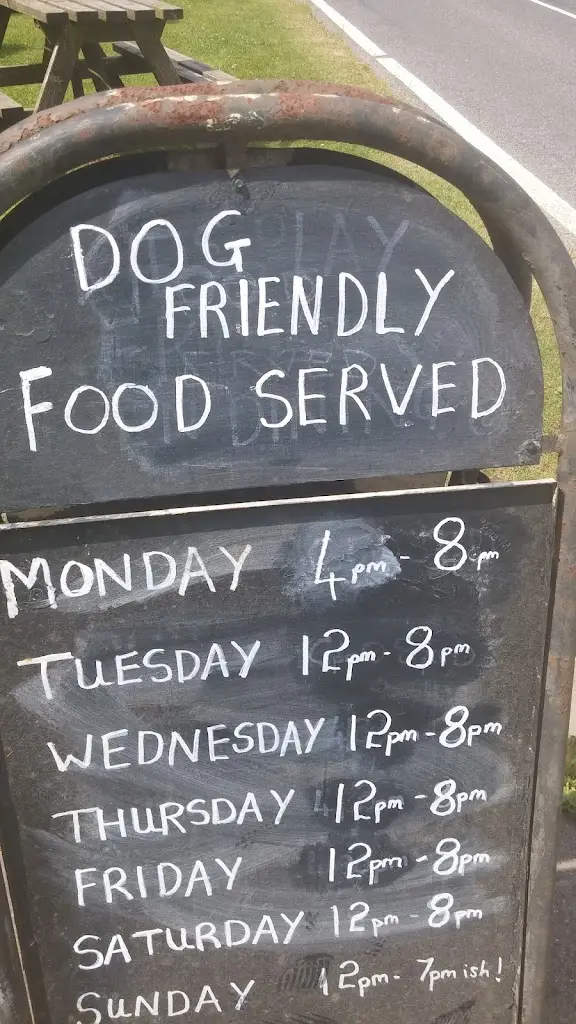 DOG
FRIENDLY
FOOD SERVED
MONDAY 4pm - 8pm
TUESDAY 12pm - 8pm
WEDNESDAY 12pm - 8pm
THURSDAY 12pm - 8pm
FRIDAY 12pm - 8pm
SATURDAY 12pm - 8pm
SUNDAY 12pm - 7pm ish!